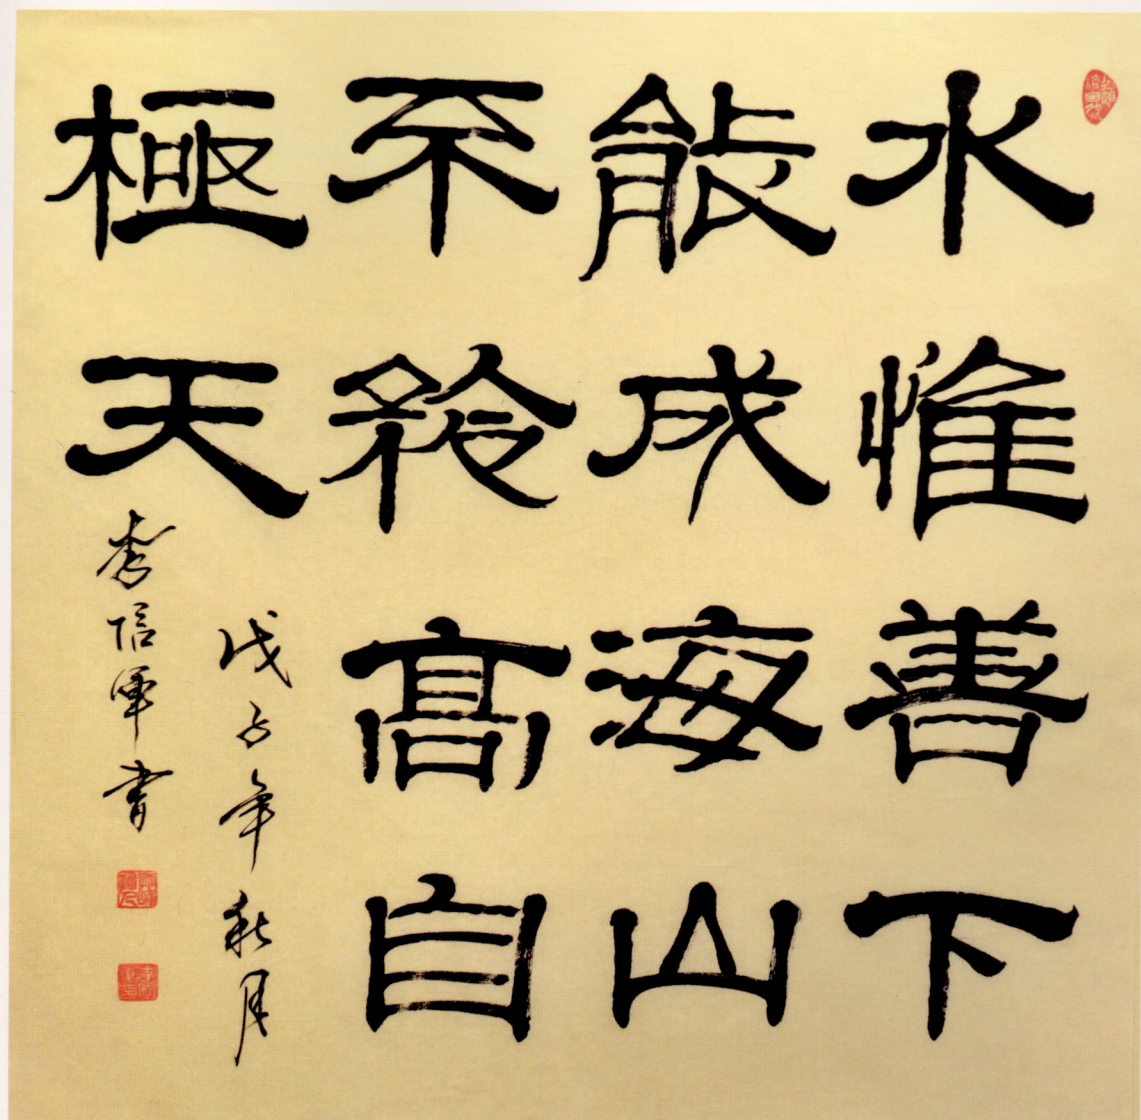 水惟善下
能成海山
不矜高自
極天
戊子年秋月
李信軍書